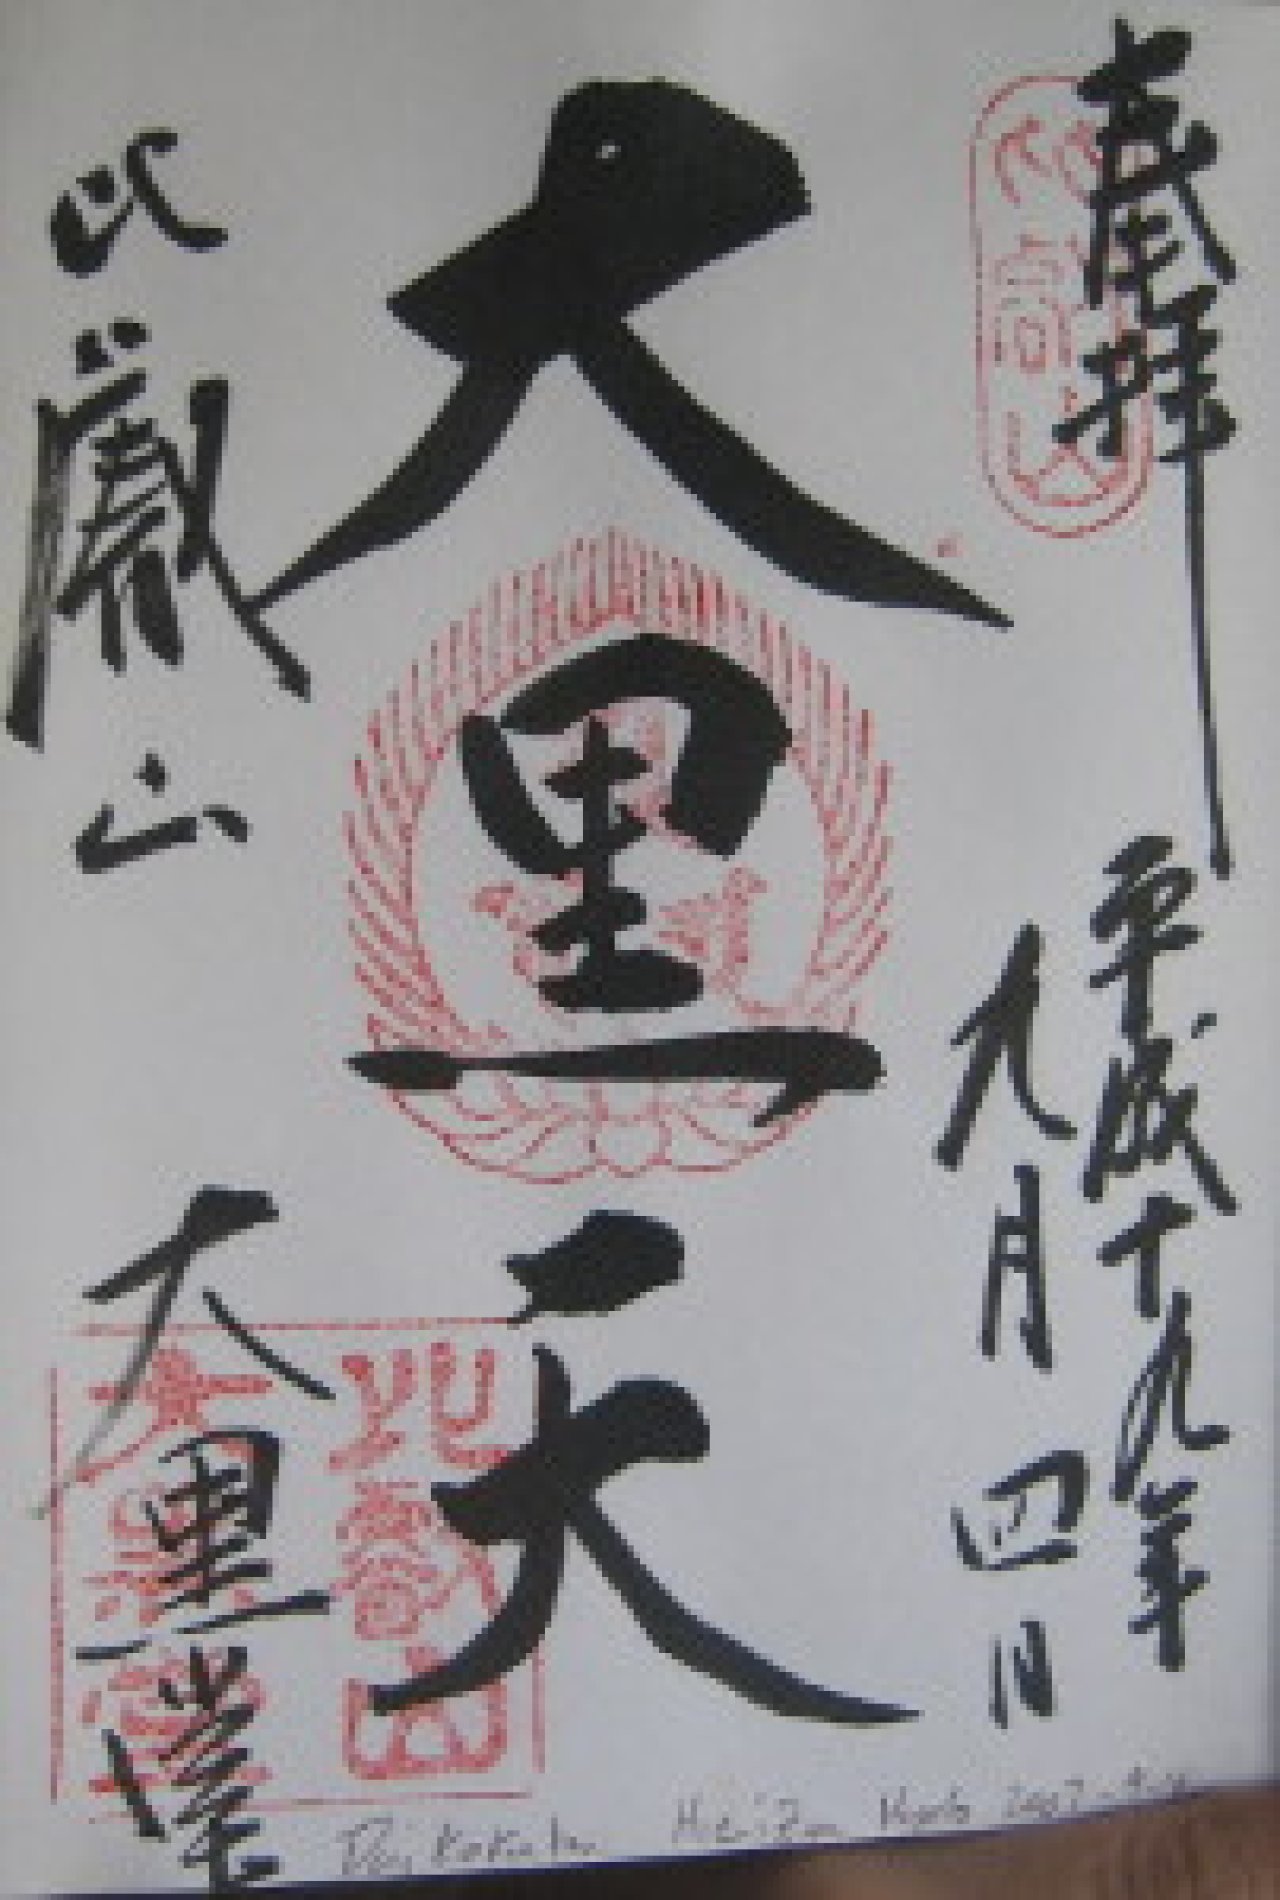 奉拝
平成十九年
九月四日
大黒天
比叡山
大黒堂
Daikokuten Hieizan Kyoto 2007